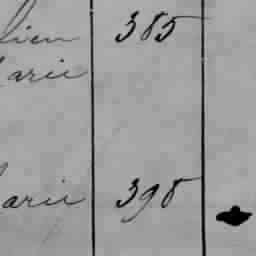 lien 385
arie
arie 398